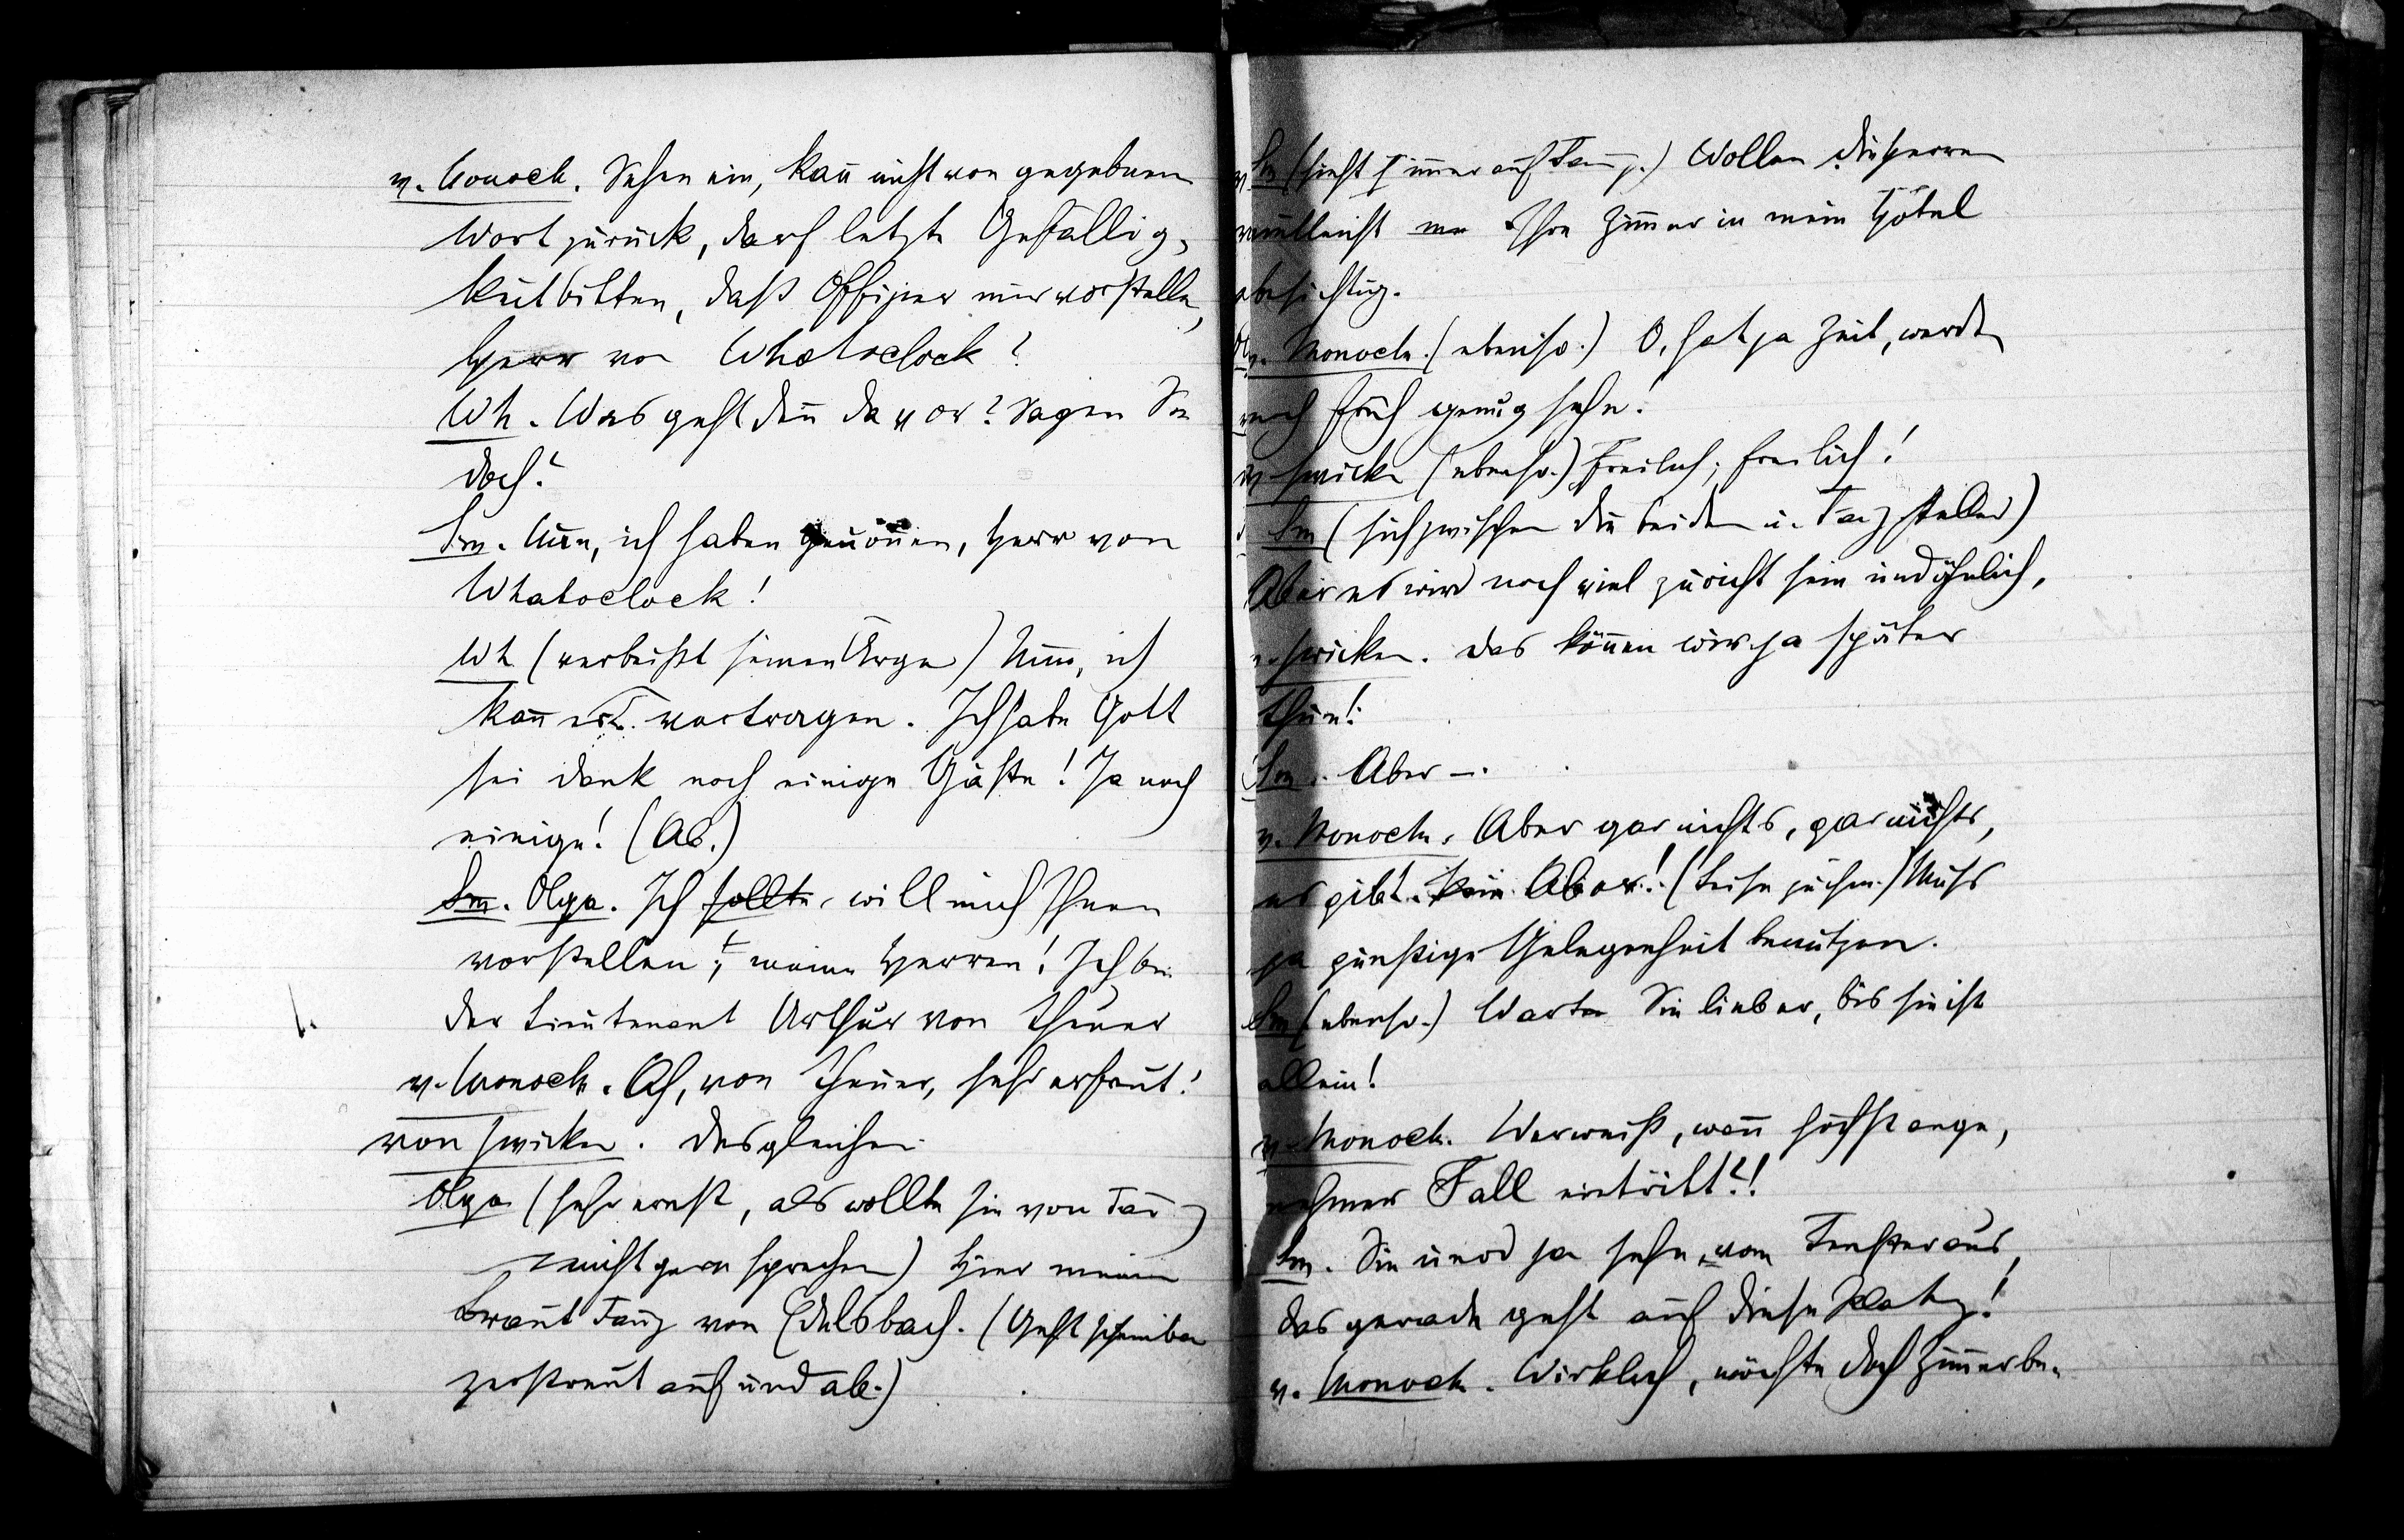 v. Monocle. Sehen ein, kann nicht von gegebenem
Wort zurück, darf letzte Gefällig,
keit bitten, daß Offizier mir vorstelle,
Herr von Whatsclock?
Wh. Was geht denn da vor? Sagen Sie
doch!
Sm. Nun, ich haben gewonnen, Herr von
Whatoclock!
Wh (verbeißt seinen Ärger) Nun, ich
kann es vertragen. Ich habe Gott
sei Dank noch einige Gäste! Ja noch
einige! (Ab.)
Sm. Olga. Ich sollte, will mich Ihnen
vorstellen, meine Herren! Ich bin
der Lieutenant Arthur von Theuer
v. Monocle. Ah, von Theuer, sehr erfreut!
von Zwicker. Desgleichen
Olga (sehr ernst, als wollte sie von Fanz
nicht gern sprechen) Hier meine
Braut Fanz von Edelsbach. (Geht scheinbar
zerstreut auf und ab.)
Sm (sieht immer auf Fanz.) Wollen die Herren
vielleicht Ihre Zimmer in mein Hôtel
besichtig.
v. Monocle. (ebenso.) O, hat ja Zeit, werde
noch früh genug sehn!
v Zwicker (ebenso.) Freilich, freilich!
Sm (sich zwischen die beiden u. Fanz stellend)
Aber es wird noch viel zu richt sein und ähnlich,
v. Zwicker. Das können wir ja später
thun!
Sm. Aber –.
v. Monocle. Aber gar nichts, gar nichts,
es gibt kein Aber! (Leise zu ihm.) Muss
ja günstige Gelegenheit benutzen.
Sm (ebenso.) Warten Sie lieber, bis sie ist
allein!
v. Monocle. Wer weiß, wann höchst ange,
nehmer Fall eintritt?!
Sm. Sie werd ja sehn, vom Fenster aus,
das gerade geht auf diese Platz!
v. Monocle. Wirklich, möchte doch Zimmer be-